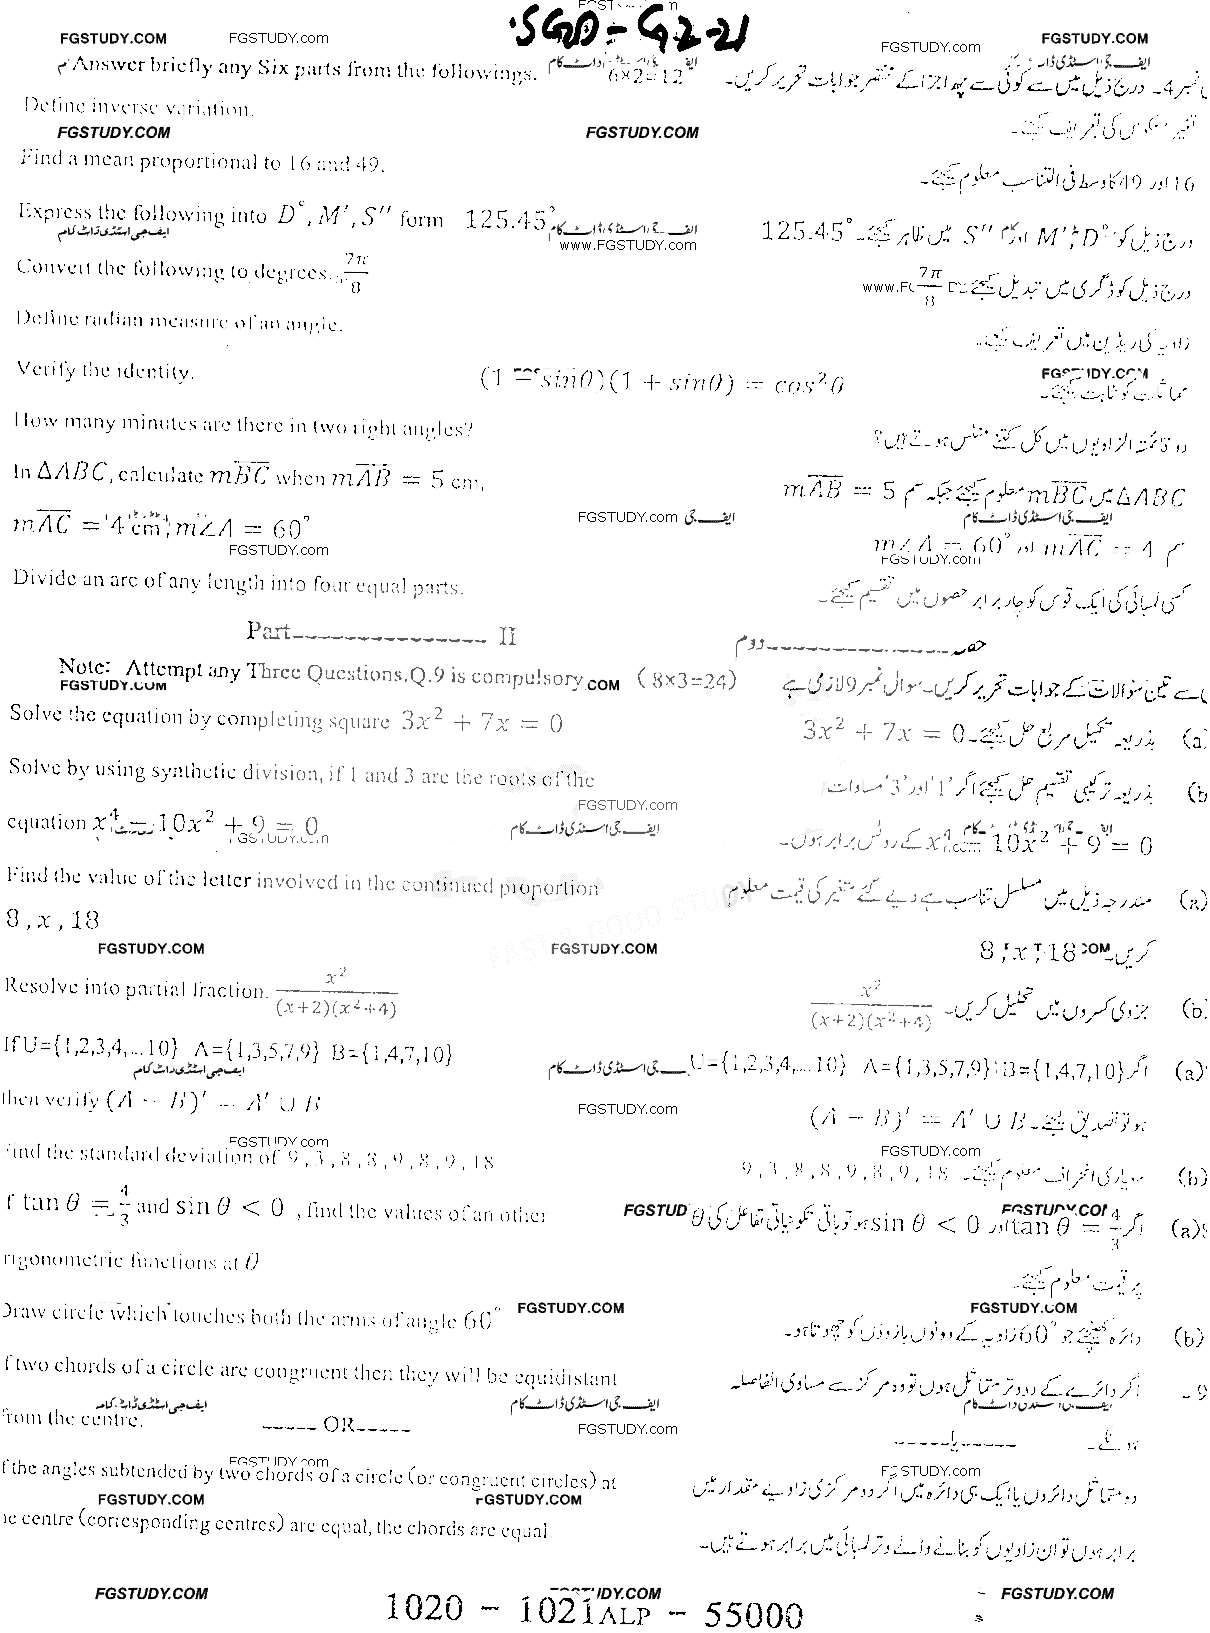 SGD-G2-21
Answer briefly any Six parts from the followings. 6×2=12 نمبر 4۔ درج ذیل میں سے کوئی سے چھ اجزا کے مختصر جوابات تحریر کریں۔
Define inverse variation. تغیر معکوس کی تعریف کیجئے۔
Find a mean proportional to 16 and 49. 16 اور 49 کا وسط فی التناسب معلوم کیجئے۔
Express the following into D°, M′, S″ form 125.45° درج ذیل کو D°, M′ اور S″ میں ظاہر کیجئے۔ 125.45°
Convert the following to degrees. 7π/8 درج ذیل کو ڈگری میں تبدیل کیجئے 7π/8
Define radian measure of an angle. زاویہ کی ریڈین میں تعریف کیجئے۔
Verify the identity. (1 − sinθ)(1 + sinθ) = cos²θ مماثلت کو ثابت کیجئے۔
How many minutes are there in two right angles? دو قائمۃ الزاویوں میں کل کتنے منٹس ہوتے ہیں؟
In ΔABC, calculate mBC when mAB = 5 cm, ΔABC میں mBC معلوم کیجئے جبکہ سم mAB = 5
mAC = 4 cm, m∠A = 60° سم m∠A = 60° اور mAC = 4
Divide an arc of any length into four equal parts. کسی لمبائی کی ایک قوس کو چار برابر حصوں میں تقسیم کیجئے۔
Part---------------- II حصہ ---------------- دوم
Note: Attempt any Three Questions, Q.9 is compulsory (8×3=24) سے تین سوالات کے جوابات تحریر کریں۔ سوال نمبر 9 لازمی ہے
Solve the equation by completing square 3x² + 7x = 0 (a) بذریعہ تکمیل مربع حل کیجئے۔ 3x² + 7x = 0
Solve by using synthetic division, if 1 and 3 are the roots of the (b) بذریعہ ترکیبی تقسیم حل کیجئے اگر '1' اور '3' مساوات
equation x⁴ − 10x² + 9 = 0 x⁴ − 10x² + 9 = 0 کے روٹس برابر ہوں۔
Find the value of the letter involved in the continued proportion (a) مندرجہ ذیل میں مسلسل تناسب سے دیے گئے متغیر کی قیمت معلوم
8 , x , 18 کریں۔ 8 , x , 18
Resolve into partial fraction. x²/(x+2)(x²+4) (b) جزوی کسروں میں تحلیل کریں۔ x²/(x+2)(x²+4)
If U={1,2,3,4,...10} A={1,3,5,7,9} B={1,4,7,10} (a) اگر U={1,2,3,4,...10} A={1,3,5,7,9} B={1,4,7,10}
then verify (A − B)′ = A′ ∪ B ہو تو تصدیق کیجئے۔ (A − B)′ = A′ ∪ B
Find the standard deviation of 9 , 3 , 8 , 8 , 9 , 8 , 9 , 18 (b) معیاری انحراف معلوم کیجئے۔ 9 , 3 , 8 , 8 , 9 , 8 , 9 , 18
f tan θ = 4/3 and sin θ < 0 , find the values of an other (a) اگر tan θ = 4/3 اور sin θ < 0 ہو تو باقی تکونیاتی تفاعل کی θ
rigonometric functions at θ پر قیمت معلوم کیجئے۔
Draw circle which touches both the arms of angle 60° (b) دائرہ کھینچئے جو 60° زاویہ کے دونوں بازوؤں کو چھوتا ہو۔
f two chords of a circle are congruent then they will be equidistant 9۔ اگر دائرے کے دو وتر متماثل ہوں تو وہ مرکز سے مساوی الفاصلہ
from the centre. ----- OR----- ہونگے۔ -----یا-----
f the angles subtended by two chords of a circle (or congruent circles) at دو متماثل دائروں یا ایک ہی دائرہ میں اگر دو مرکزی زاویے مقدار میں
he centre (corresponding centres) are equal, the chords are equal. برابر ہوں تو ان زاویوں کو بنانے والے وتر لمبائی میں برابر ہوتے ہیں۔
FGSTUDY.COM
1020 - 1021ALP - 55000